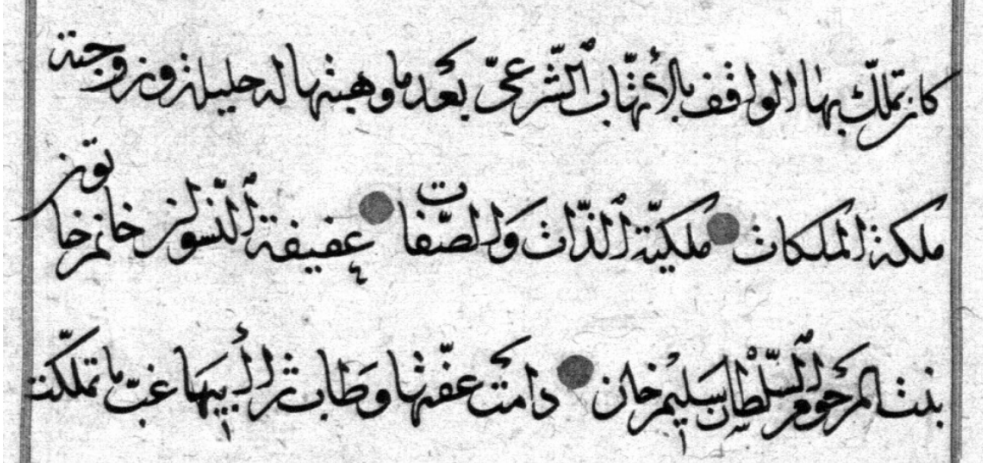 كان تملّك بها الواقف بالأتّهاب الشّرعىّ بعد ما وهبتها له حليلته وزوجته
ملكة الملكات ملكيّة الذّات والصّفات عفيفة النّسوان خانم خاتون
بنت المرحوم السّلطان سليم خان دامت عفّتها وطاب ثرى أبيها غبّ ما تملّكت